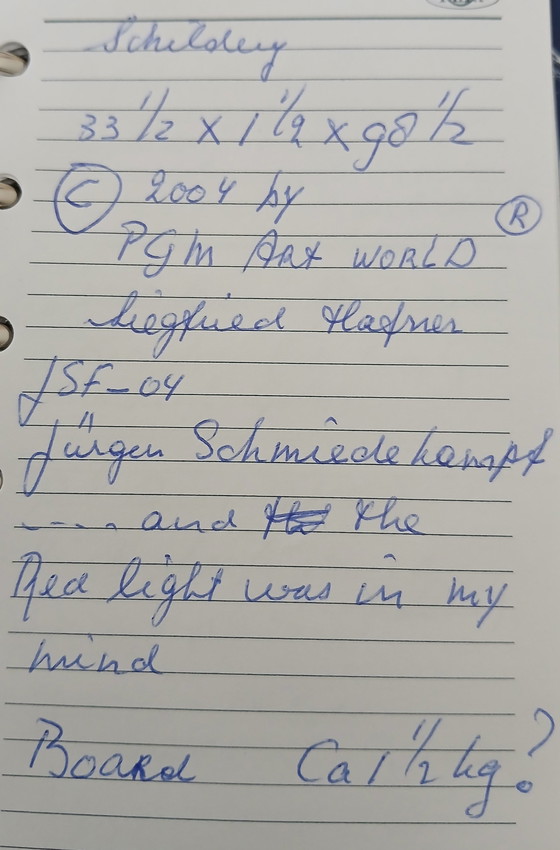 Schildery
33 1/2 x 1 1/2 x 98 1/2
© 2004 by
®
PGM Art WORLD
Siegfried Hafner
JSF-04
Jürgen Schmiedekampf
..... and the
Red light was in my
mind
Board Ca 1 1/2 kg?